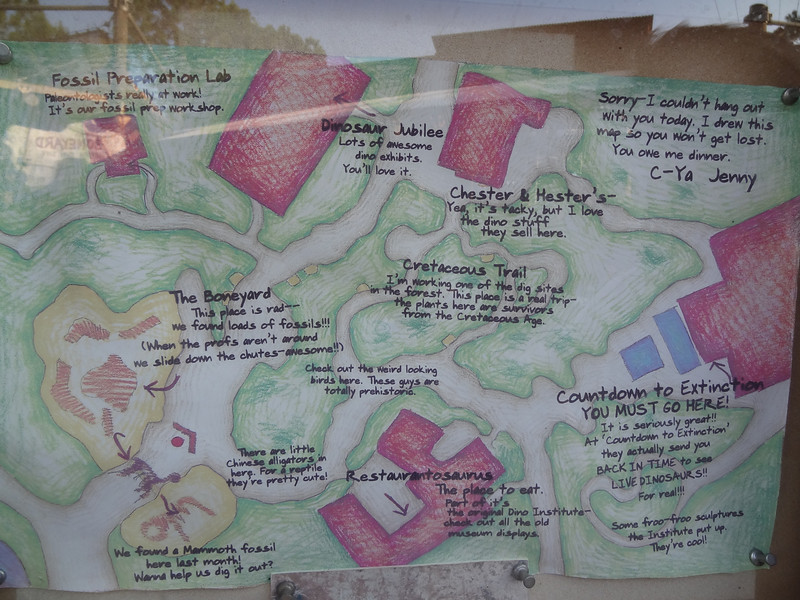 Fossil Preparation Lab
Paleontologists really at work!
It's our fossil prep workshop.
Dinosaur Jubilee
Lots of awesome
dino exhibits.
You'll love it.
Sorry-I couldn't hang out
with you today. I drew this
map so you won't get lost.
You owe me dinner.
C-Ya Jenny
Chester & Hester's-
Yea, it's tacky, but I love
the dino stuff
they sell here.
BONEYARD
Cretaceous Trail
I'm working one of the dig sites
in the forest. This place is a real trip--
the plants here are survivors
from the Cretaceous Age.
The Boneyard
This place is rad--
we found loads of fossils!!!
(When the profs aren't around
we slide down the chutes-awesome!!)
Check out the weird looking
birds here. These guys are
totally prehistoric.
Countdown to Extinction
YOU MUST GO HERE!
It is seriously great!!
At 'Countdown to Extinction'
they actually send you
BACK IN TIME to see
LIVE DINOSAURS!!
For real!!!!
There are little
Chinese alligators in
here. For a reptile
they're pretty cute!
Restaurantosaurus
The place to eat.
Part of it's
the original Dino Institute-
check out all the old
museum displays.
Some froo-froo sculptures
the Institute put up.
They're cool!
We found a Mammoth fossil
here last month!
Wanna help us dig it out?